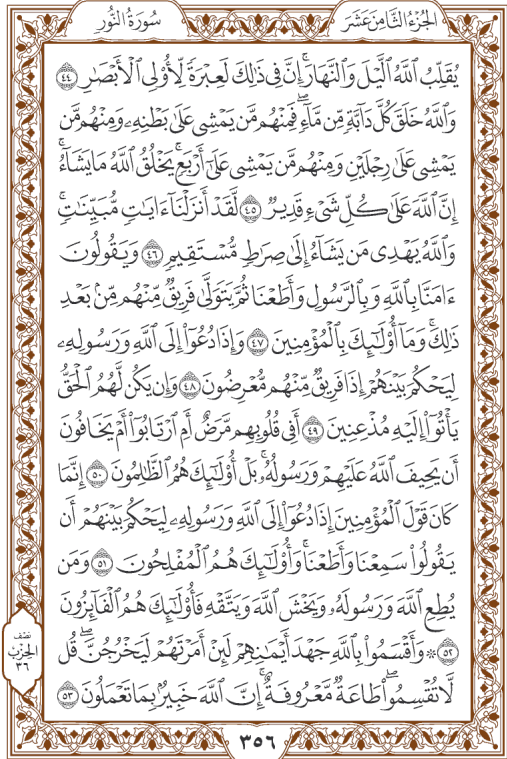 الجُزْءُ الثَّامِنَ عَشَرَ
سُورَةُ النُّورِ
يُقَلِّبُ ٱللَّهُ ٱلَّيۡلَ وَٱلنَّهَارَۚ إِنَّ فِي ذَٰلِكَ لَعِبۡرَةٗ لِّأُوْلِي ٱلۡأَبۡصَٰرِ ٤٤
وَٱللَّهُ خَلَقَ كُلَّ دَآبَّةٖ مِّن مَّآءٖۖ فَمِنۡهُم مَّن يَمۡشِي عَلَىٰ بَطۡنِهِۦ وَمِنۡهُم مَّن
يَمۡشِي عَلَىٰ رِجۡلَيۡنِ وَمِنۡهُم مَّن يَمۡشِي عَلَىٰٓ أَرۡبَعٖۚ يَخۡلُقُ ٱللَّهُ مَا يَشَآءُۚ
إِنَّ ٱللَّهَ عَلَىٰ كُلِّ شَيۡءٖ قَدِيرٞ ٤٥ لَّقَدۡ أَنزَلۡنَآ ءَايَٰتٖ مُّبَيِّنَٰتٖۚ
وَٱللَّهُ يَهۡدِي مَن يَشَآءُ إِلَىٰ صِرَٰطٖ مُّسۡتَقِيمٖ ٤٦ وَيَقُولُونَ
ءَامَنَّا بِٱللَّهِ وَبِٱلرَّسُولِ وَأَطَعۡنَا ثُمَّ يَتَوَلَّىٰ فَرِيقٞ مِّنۡهُم مِّنۢ بَعۡدِ
ذَٰلِكَۚ وَمَآ أُوْلَٰٓئِكَ بِٱلۡمُؤۡمِنِينَ ٤٧ وَإِذَا دُعُوٓاْ إِلَى ٱللَّهِ وَرَسُولِهِۦ
لِيَحۡكُمَ بَيۡنَهُمۡ إِذَا فَرِيقٞ مِّنۡهُم مُّعۡرِضُونَ ٤٨ وَإِن يَكُن لَّهُمُ ٱلۡحَقُّ
يَأۡتُوٓاْ إِلَيۡهِ مُذۡعِنِينَ ٤٩ أَفِي قُلُوبِهِم مَّرَضٌ أَمِ ٱرۡتَابُوٓاْ أَمۡ يَخَافُونَ
أَن يَحِيفَ ٱللَّهُ عَلَيۡهِمۡ وَرَسُولُهُۥۚ بَلۡ أُوْلَٰٓئِكَ هُمُ ٱلظَّٰلِمُونَ ٥٠ إِنَّمَا
كَانَ قَوۡلَ ٱلۡمُؤۡمِنِينَ إِذَا دُعُوٓاْ إِلَى ٱللَّهِ وَرَسُولِهِۦ لِيَحۡكُمَ بَيۡنَهُمۡ أَن
يَقُولُواْ سَمِعۡنَا وَأَطَعۡنَاۚ وَأُوْلَٰٓئِكَ هُمُ ٱلۡمُفۡلِحُونَ ٥١ وَمَن
يُطِعِ ٱللَّهَ وَرَسُولَهُۥ وَيَخۡشَ ٱللَّهَ وَيَتَّقۡهِ فَأُوْلَٰٓئِكَ هُمُ ٱلۡفَآئِزُونَ
٥٢ ۞ وَأَقۡسَمُواْ بِٱللَّهِ جَهۡدَ أَيۡمَٰنِهِمۡ لَئِنۡ أَمَرۡتَهُمۡ لَيَخۡرُجُنَّۖ قُل
لَّا تُقۡسِمُواْۖ طَاعَةٞ مَّعۡرُوفَةٌۚ إِنَّ ٱللَّهَ خَبِيرُۢ بِمَا تَعۡمَلُونَ ٥٣
نصف
الحزب
٣٦
٣٥٦